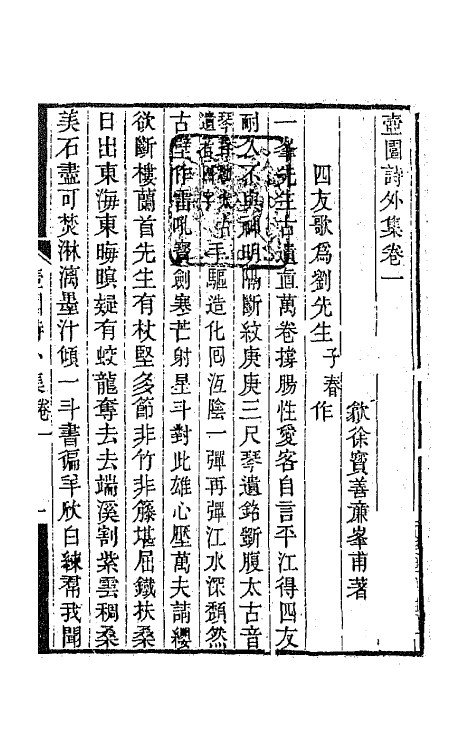 壺園詩外集卷一
歙徐寶善廉峯甫著
四友歌爲劉先生子春作
一峯先生古遺直萬卷撐腸性愛客自言平江得四友
耐久不與神明隔斷紋庚庚三尺琴遺銘劉腹太古音
手驅造化回沍陰一彈再彈江水深頽然
古壁作雷吼寶劍寒芒射星斗對此雄心壓萬夫請纓
欲斷樓蘭首先生有杖堅多節非竹非籐堪屈鐵扶桑
日出東海東晦暝疑有蛟龍奪去去端溪割紫雲稠桑
美石盡可焚淋漓墨汁傾一斗書徧羊欣白練帬我聞